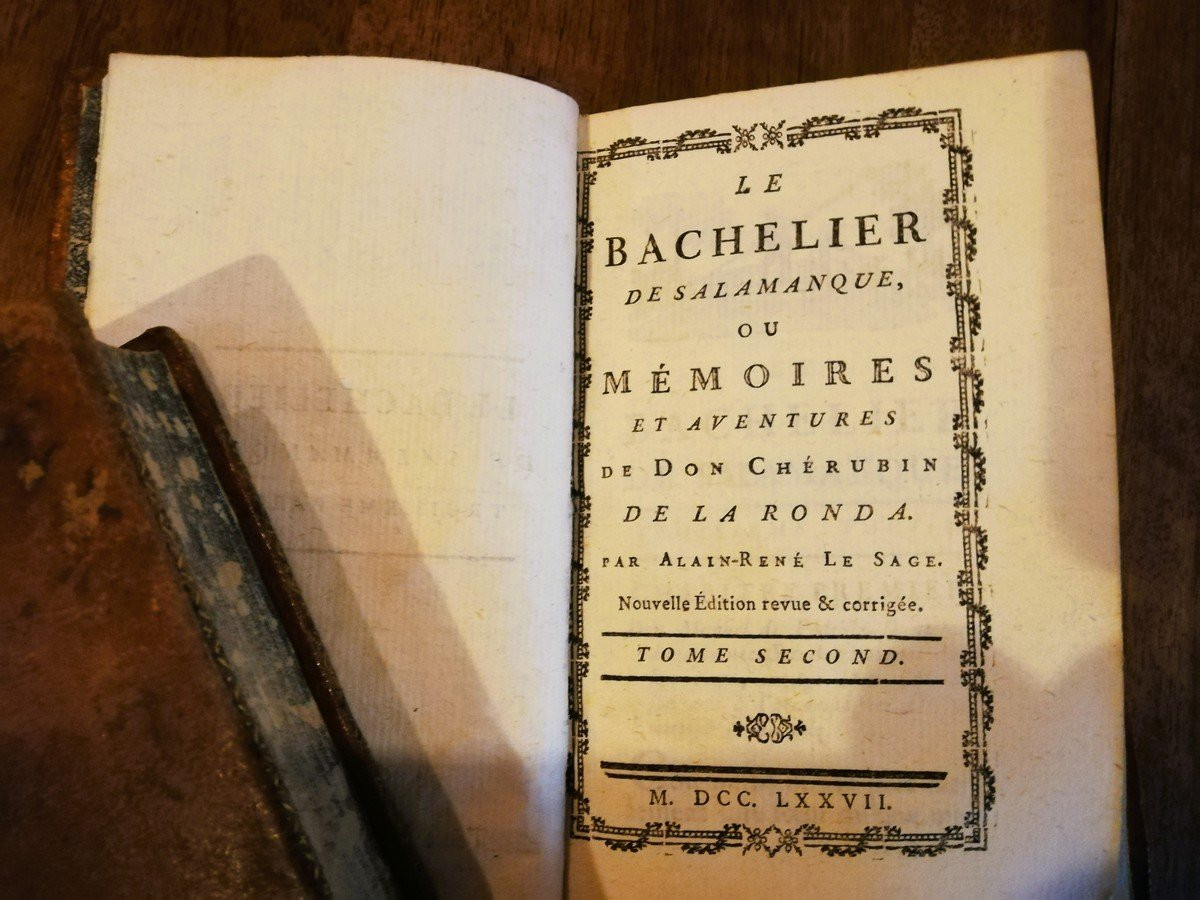 LE
BACHELIER
DE SALAMANQUE,
OU
MÉMOIRES
ET AVENTURES
DE DON CHÉRUBIN
DE LA RONDA.
PAR ALAIN-RENÉ LE SAGE.
Nouvelle Édition revue & corrigée.
TOME SECOND.
M. DCC. LXXVII.